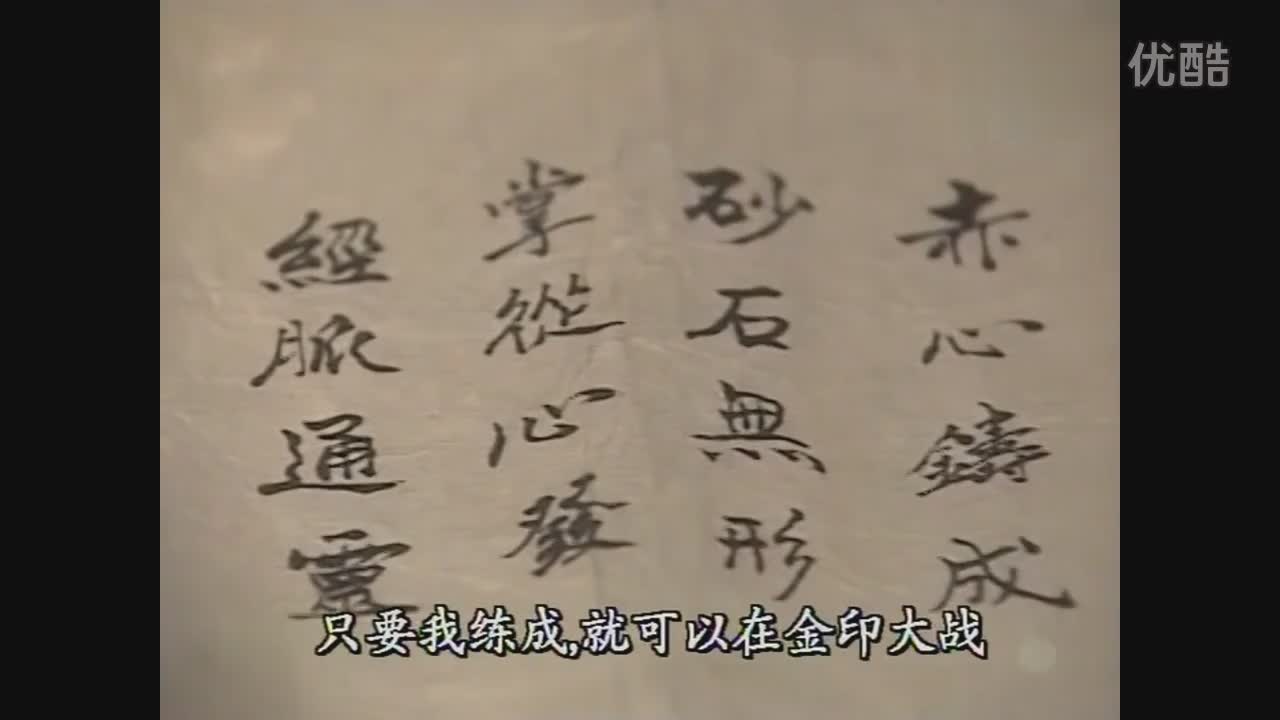 优酷
赤心鑄成
砂石無形
掌從心發
經脈通靈
只要我练成,就可以在金印大战